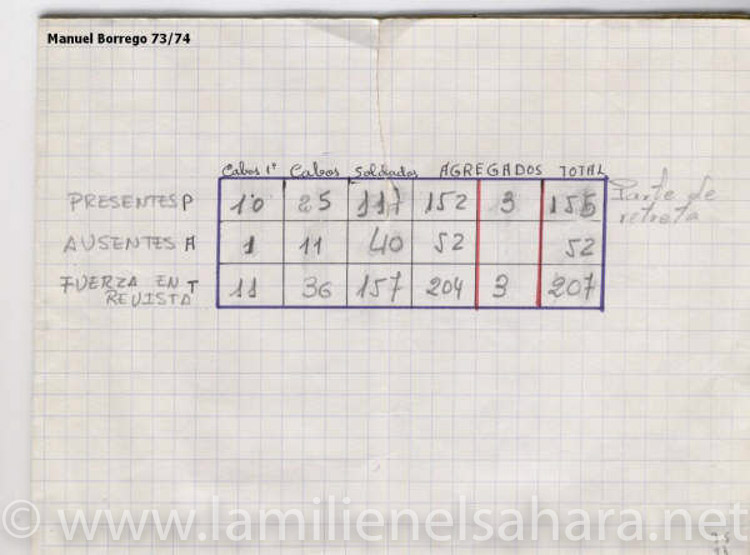 Manuel Borrego 73/74
Cabos 1º Cabos Soldados AGREGADOS TOTAL
PRESENTES P 10 25 117 152 3 155 Parte de
retreta
AUSENTES A 1 11 40 52 52
FUERZA EN T 11 36 157 204 3 207
REVISTA
© www.lamilienelsahara.net